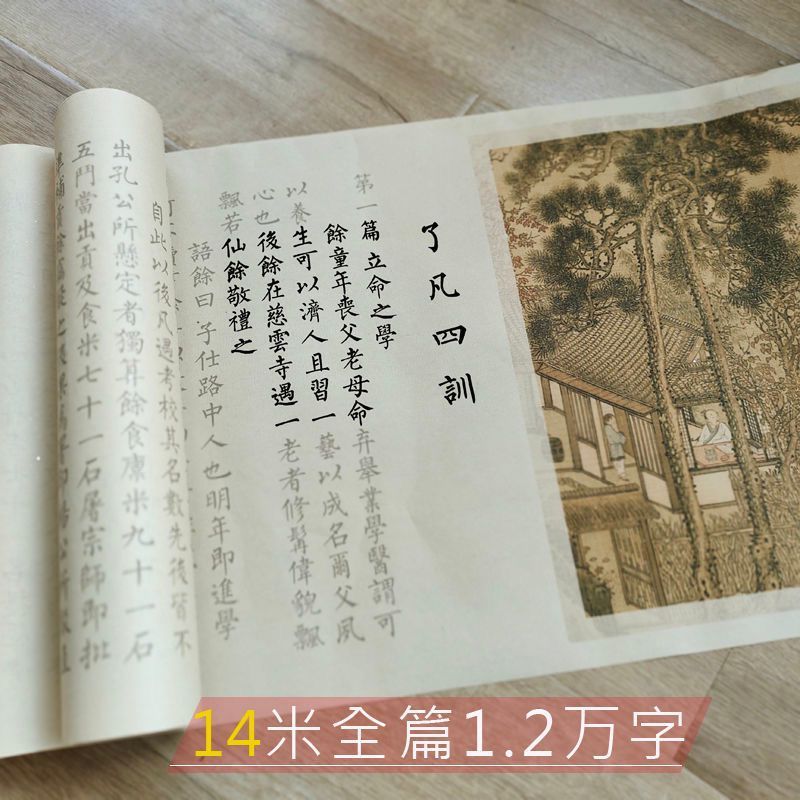 了凡四訓
第一篇 立命之學
餘童年喪父老母命弃舉業學醫謂可
以養生可以濟人且習一藝以成名爾父夙
心也後餘在慈雲寺遇一老者修髯偉貌飄
飄若仙餘敬禮之
語餘曰子仕路中人也明年即進學
自此以後凡遇考校其名數先後皆不
出孔公所懸定者獨算餘食廩米九十一石
五鬥當出貢及食米七十一石屠宗師即批
14米全篇1.2万字